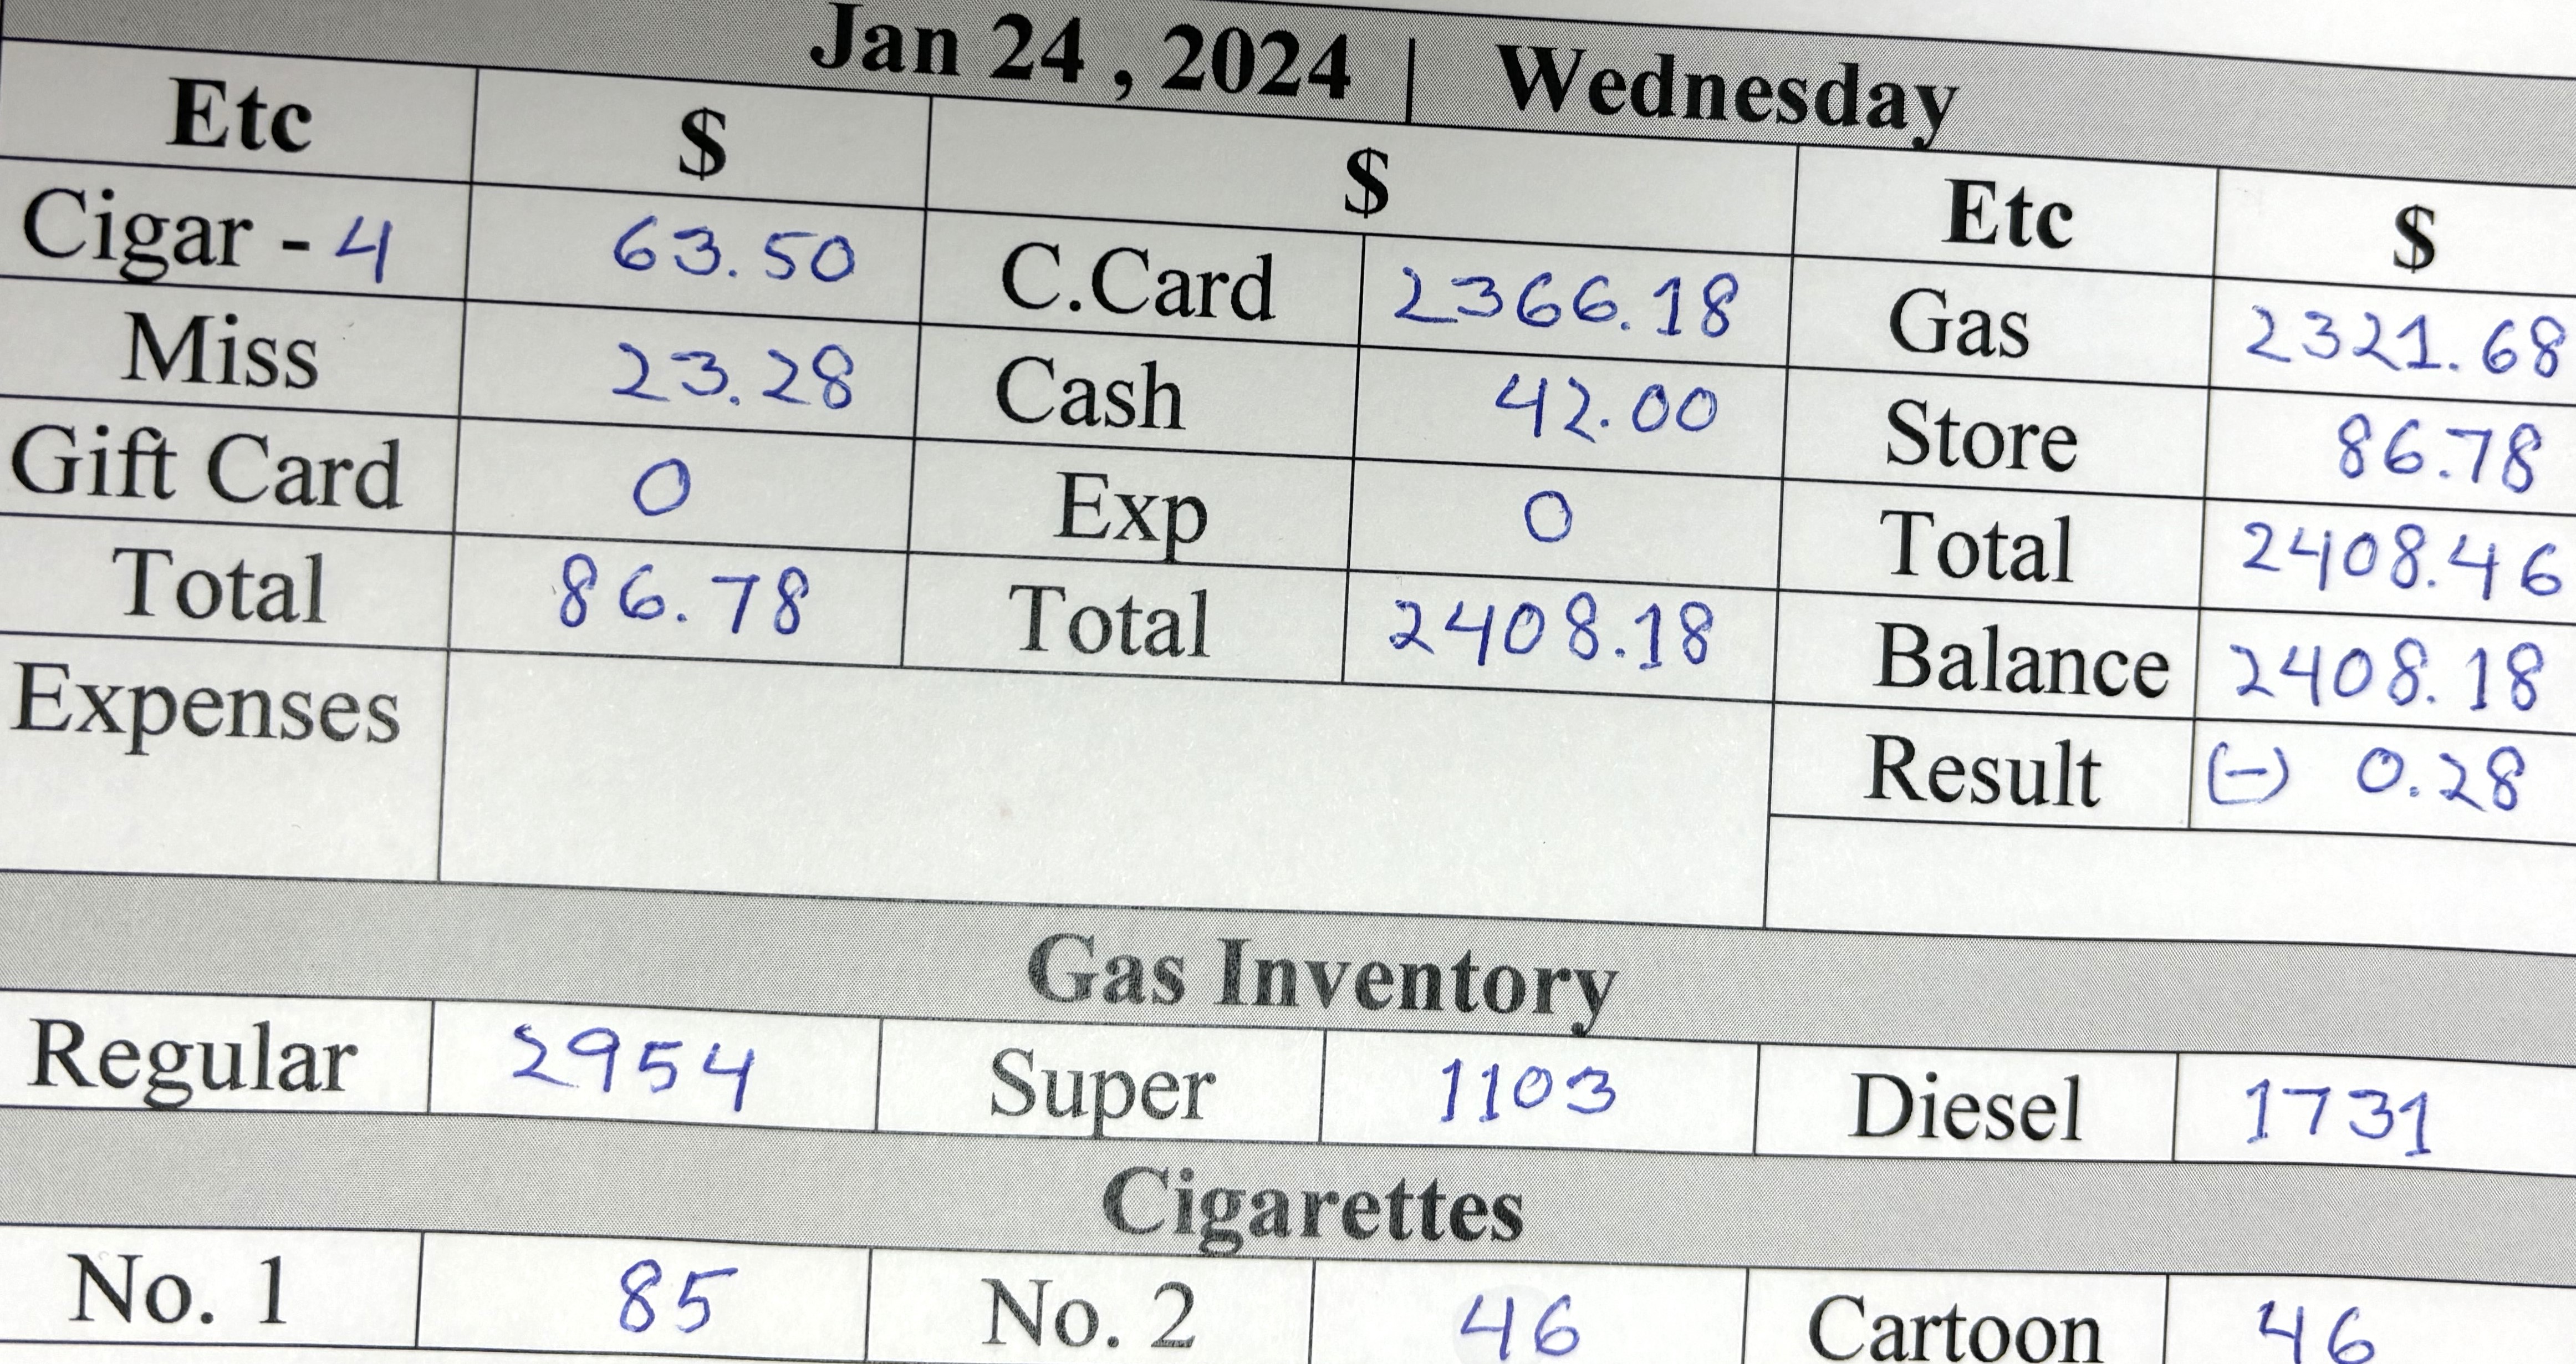 Jan 24 , 2024 | Wednesday
Etc $ $ Etc $
Cigar - 4 63.50 C.Card 2366.18 Gas 2321.68
Miss 23.28 Cash 42.00 Store 86.78
Gift Card 0 Exp 0 Total 2408.46
Total 86.78 Total 2408.18 Balance 2408.18
Expenses Result (-) 0.28
Gas Inventory
Regular 2954 Super 1103 Diesel 1731
Cigarettes
No. 1 85 No. 2 46 Cartoon 46